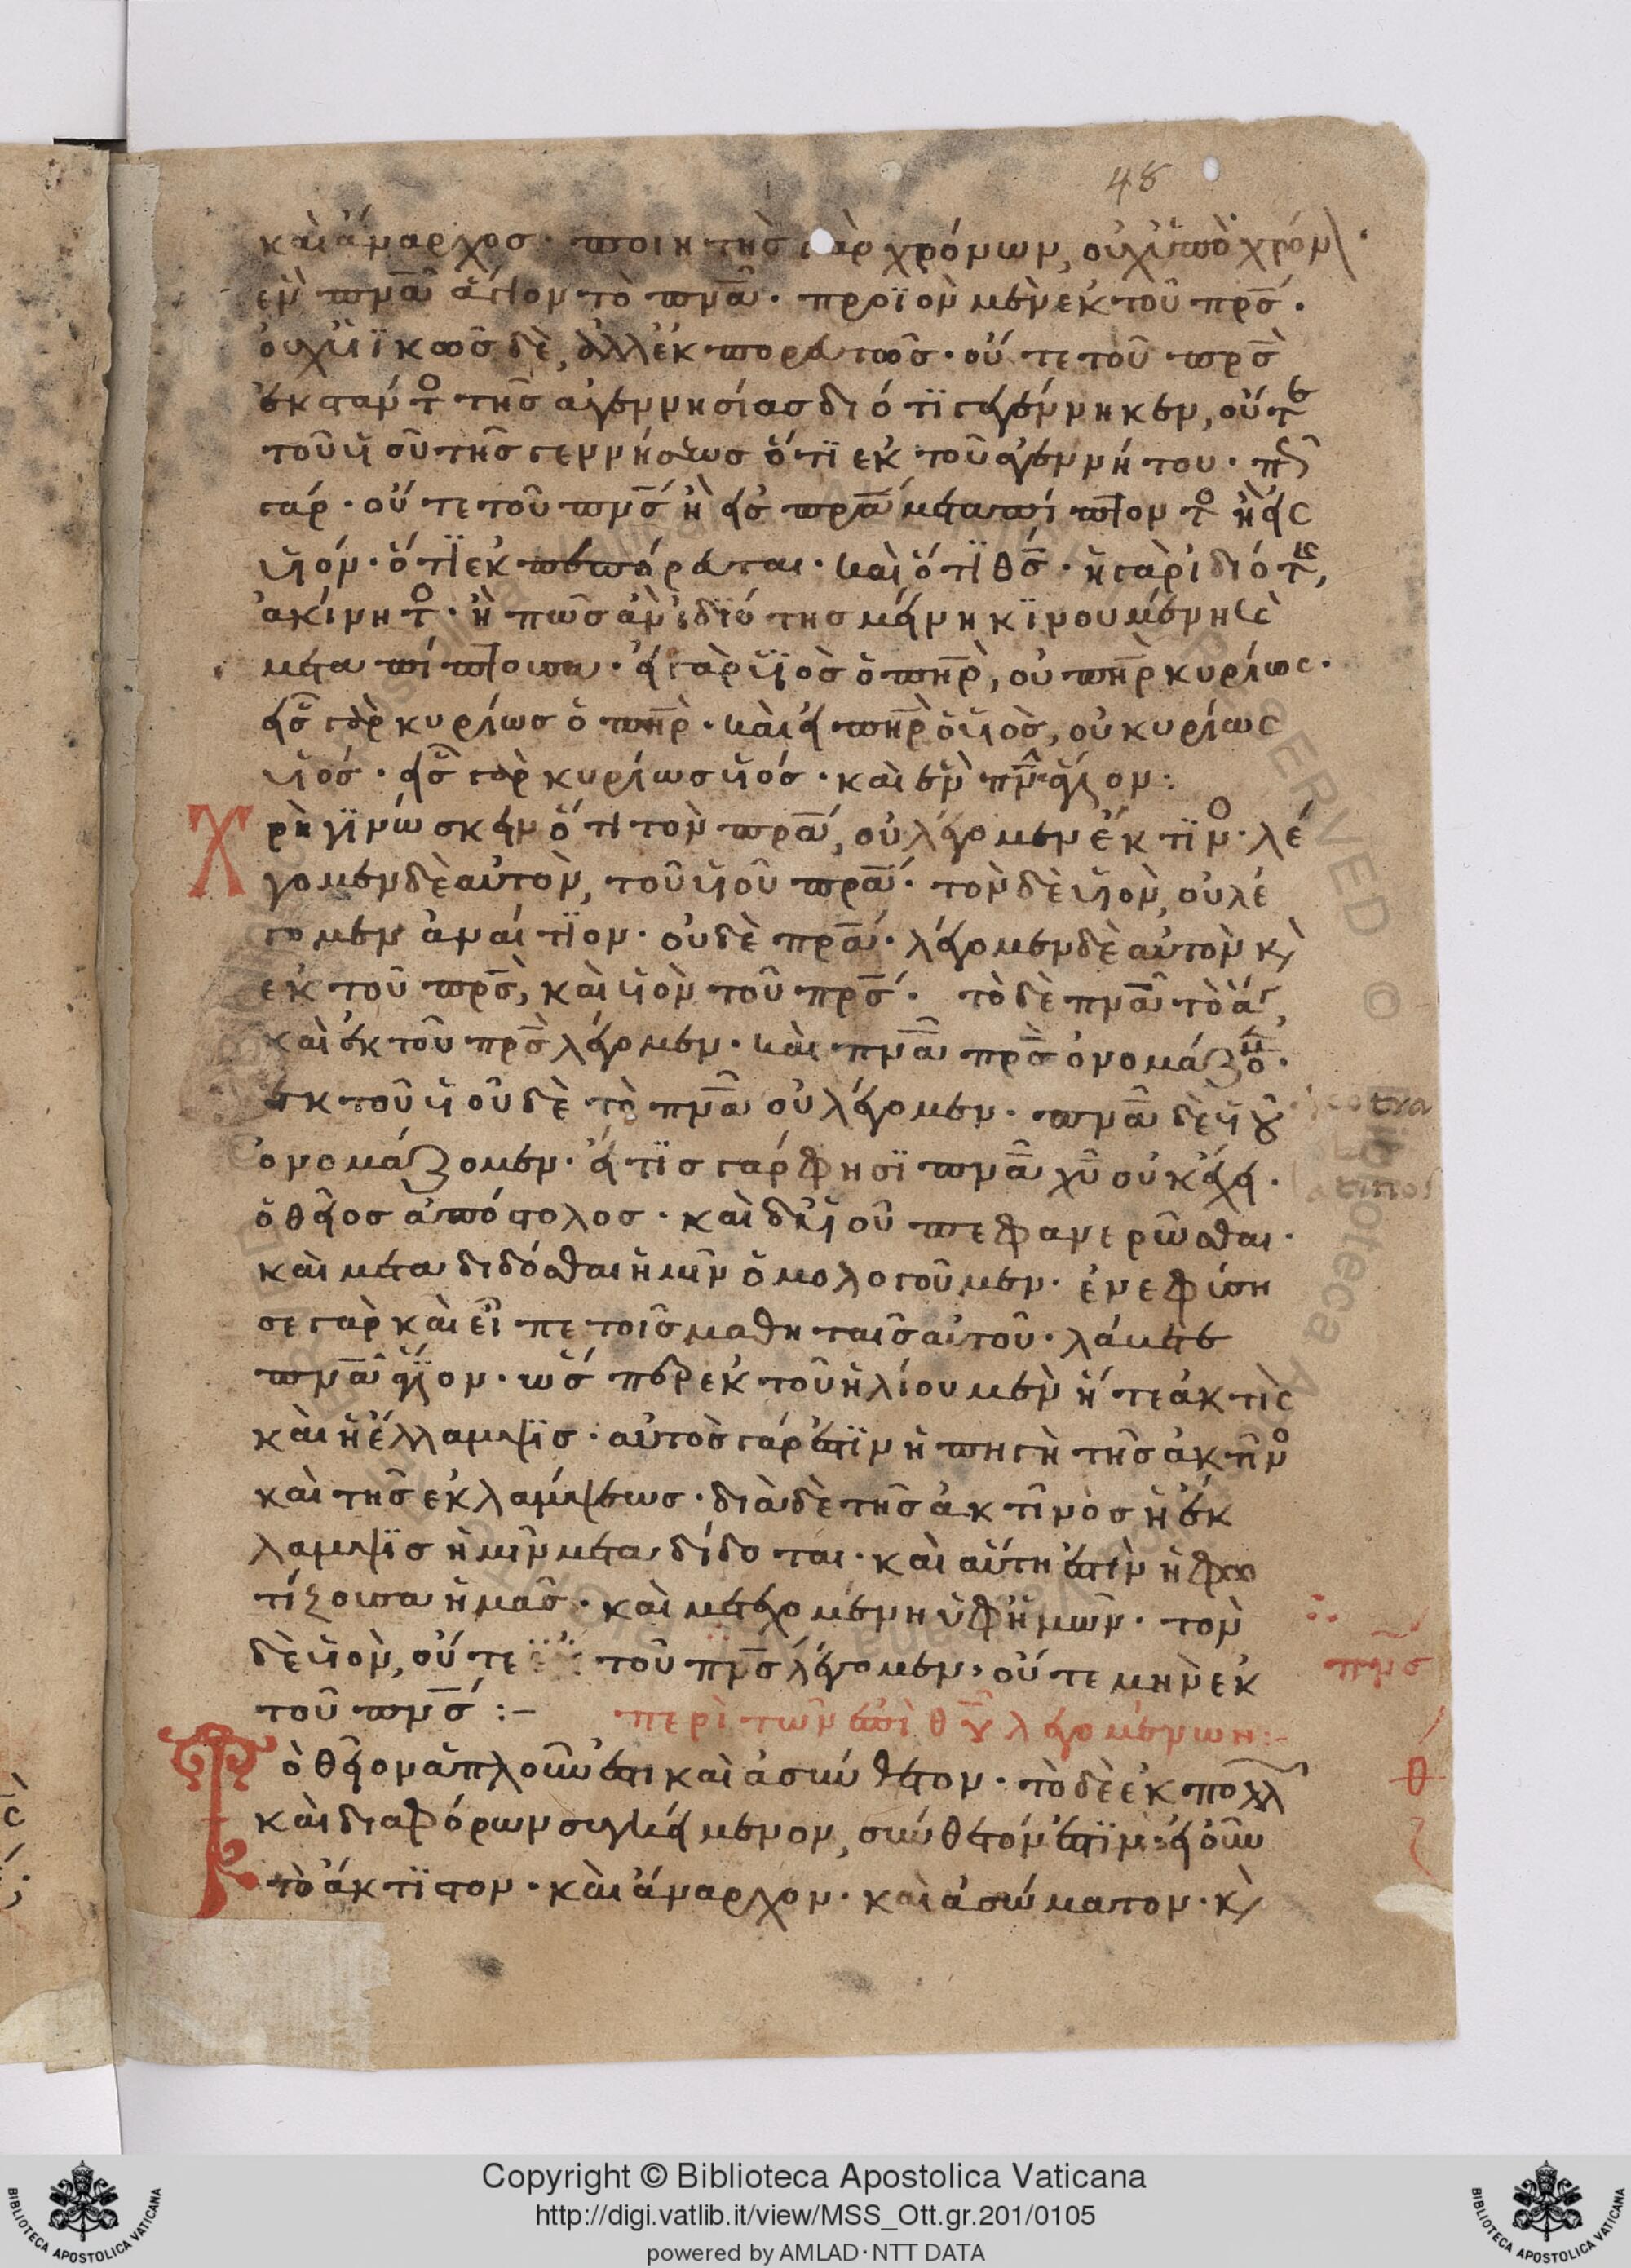 48
καὶ ἄναρχος· ποιητὴς γὰρ χρόνων, οὐχ ὑπὸ χρόν·
ἓν πνᾶ ἅγιον τὸ πνᾶ· προϊὸν μὲν ἐκ τοῦ πρς·
οὐχ υἱϊκῶς δὲ, ἀλλ' ἐκπορευτῶς· οὔτε τοῦ πρς
ἐκστάντος τῆς ἀγεννησίας διότι γεγέννηκεν, οὔτε
τοῦ υἱοῦ τῆς γεννήσεως ὅτι ἐκ τοῦ ἀγεννήτου· πῶς
γάρ· οὔτε τοῦ πνς ἢ εἰς πρα μεταπίπτοντος ἢ εἰς
υἱόν· ὅτι ἐκπεπόρευται· καὶ ὅτι θς· ἡ γὰρ ἰδιότης,
ἀκίνητος· ἢ πῶς ἂν ἰδιότης μένη κινουμένη καὶ
μεταπίπτουσα· εἰ γὰρ υἱὸς ὁ πηρ, οὐ πηρ κυρίως·
εἷς γὰρ κυρίως ὁ πηρ· καὶ εἰ πηρ ὁ υἱὸς, οὐ κυρίως
υἱός· εἷς γὰρ κυρίως υἱός· καὶ ἓν πνᾶ ἅγιον:
Χρὴ γινώσκειν ὅτι τὸν πρα, οὐ λέγομεν ἔκ τινος· λέ
γομεν δὲ αὐτὸν, τοῦ υἱοῦ πρα· τὸν δὲ υἱὸν, οὐ λέ
γομεν ἀναίτιον· οὐδὲ πρα· λέγομεν δὲ αὐτὸν κὶ
ἐκ τοῦ πρς, καὶ υἱὸν τοῦ πρς· τὸ δὲ πνᾶ τὸ ἅγ,
καὶ ἐκ τοῦ πρς λέγομεν· καὶ πνᾶ πρς ὀνομάζομεν·
ἐκ τοῦ υἱοῦ δὲ τὸ πνᾶ οὐ λέγομεν· πνᾶ δὲ υἱοῦ
ὀνομάζομεν· εἴ τις γάρ φησι πνᾶ χυ οὐκ ἔχει·
ὁ θεῖος ἀπόστολος· καὶ δι' υἱοῦ πεφανερῶσθαι·
καὶ μεταδιδόσθαι ἡμῖν ὁμολογοῦμεν· ἐνεφύση
σε γὰρ καὶ εἶπε τοῖς μαθηταῖς αὐτοῦ· λάβετε
πνᾶ ἅγιον· ὥσπερ ἐκ τοῦ ἡλίου μὲν ἥ τε ἀκτὶς
καὶ ἡ ἔλλαμψις· αὐτὸς γάρ ἐστιν ἡ πηγὴ τῆς ἀκτῖνος
καὶ τῆς ἐκλάμψεως· διὰ δὲ τῆς ἀκτῖνος ἡ ἔκ
λαμψις ἡμῖν μεταδίδοται· καὶ αὕτη ἐστὶν ἡ φω
τίζουσα ἡμᾶς· καὶ μετεχομένη ὑφ' ἡμῶν· τὸν
δὲ υἱὸν, οὔτε τοῦ πνς λέγομεν, οὔτε μὴν ἐκ
τοῦ πνς :–
περὶ τῶν ἐπὶ θυ λεγομένων:–
Τὸ θεῖον ἁπλοῦν ἐστι καὶ ἀσύνθετον· τὸ δὲ ἐκ πολλ
καὶ διαφόρων συγκείμενον, σύνθετόν ἐστιν· εἰ οὖν
τὸ ἄκτιστον· καὶ ἄναρχον· καὶ ἀσώματον· κὶ
Copyright © Biblioteca Apostolica Vaticana
http://digi.vatlib.it/view/MSS_Ott.gr.201/0105
powered by AMLAD·NTT DATA
BIBLIOTECA APOSTOLICA VATICANA
BIBLIOTECA APOSTOLICA VATICANA